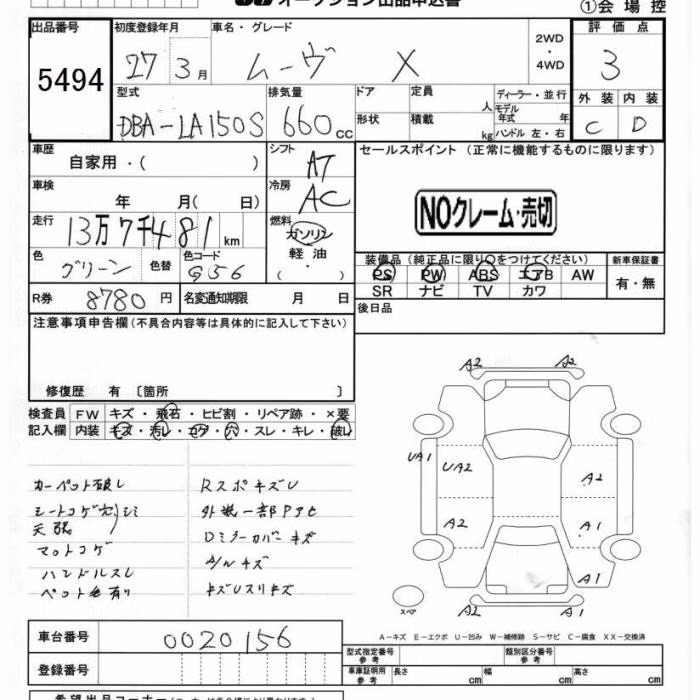 オークション出品申込書
①会場控
出品番号 初度登録年月 車名・グレード 2WD・4WD 評価点
5494 27年3月 ムーヴ X 3
型式 排気量 ドア 定員 人 ディーラー・並行 外装 内装
DBA-LA150S 660cc 形状 積載 kg モデル年式 年 ハンドル 左・右 C D
車歴 シフト セールスポイント(正常に機能するものに限ります)
自家用・( ) AT
車検 冷房
年 月( 日) AC NOクレーム・売切
走行 燃料
13万7千481km ガソリン
色 色替 色コード 軽油 装備品(純正品に限り○をつけてください) 新車保証書
グリーン G56 ( ・ ) PS PW ABS エアB AW 有・無
SR ナビ TV カワ
R券 8780円 名変通知期限 月 日 後日品
注意事項申告欄(不具合内容等は具体的に記入して下さい)
修復歴 有 〔箇所 〕
検査員 FW キズ・飛石・ヒビ割・リペア跡・×要
記入欄 内装 キズ・汚レ・コゲ・穴・スレ・キレ・破レ
カーペット破レ RスポキズU
シートコゲ穴シミ 外装一部Pアセ
天張 Dミラーカバーキズ
マットコゲ A/Wキズ
ハンドルスレ キズUスリキズ
ペット毛有り
A2 A2
UA1 UA2 A2
A2 A1
A1
スペア A2 A1
A-キズ E-エクボ U-凹み W-補修跡 S-サビ C-腐食 XX-交換済
車台番号 0020156 型式指定番号 参考 類別区分番号 参考
登録番号 車庫証明用 参考 長さ cm 幅 cm 高さ cm
希望出品コーナー